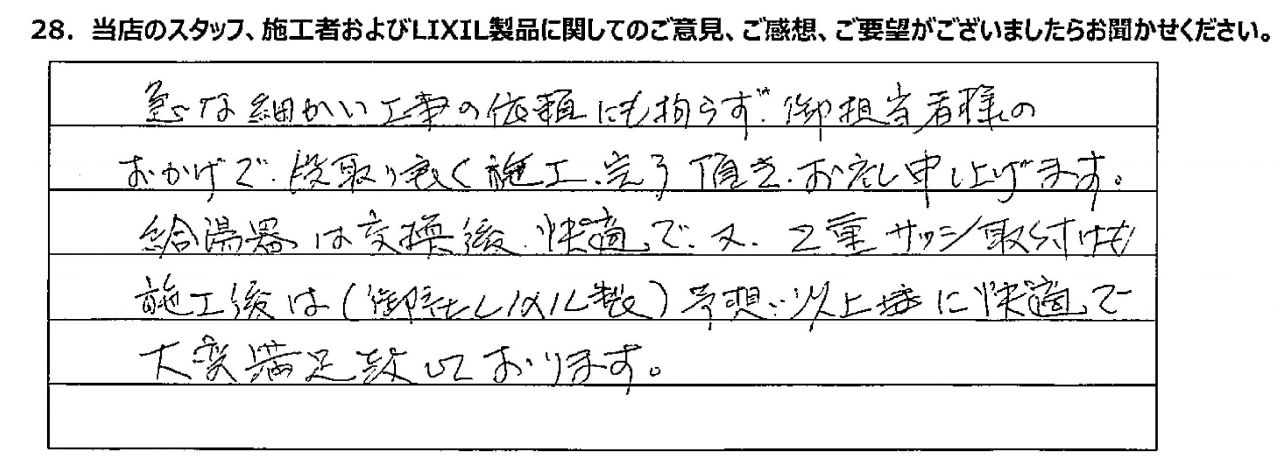 28. 当店のスタッフ、施工者およびLIXIL製品に関してのご意見、ご感想、ご要望がございましたらお聞かせください。
急な細かい工事の依頼にも拘らず、御担当者様の
おかげで、段取り良く施工、完了頂き、お礼申し上げます。
給湯器は交換後、快適で、又、2重サッシ取付けも
施工後は(御社LIXIL製)予想以上に快適で
大変満足致しております。